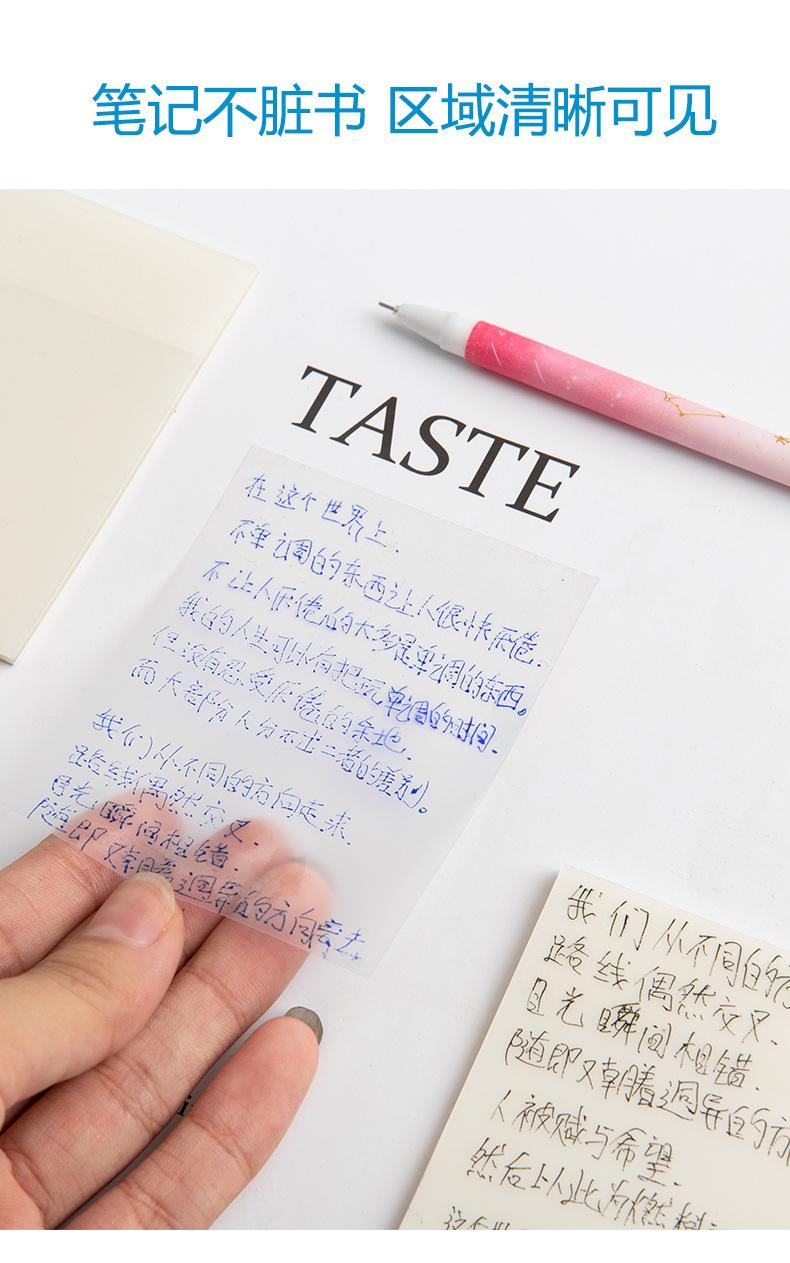 笔记不脏书 区域清晰可见
TASTE
在这个世界上.
不单调的东西让人很快厌倦.
不让人厌倦的大多是单调的东西。
我的人生可以有把玩单调的时间.
但没有忍受厌倦的余地.
而大部分人分不过二者的差别。
我们从不同的方向走来.
路线偶然交叉.
目光瞬间相错.
随即又朝着迥异的方向离去
我们从不同的方
路线偶然交叉.
目光瞬间相错.
随即又朝着迥异的方
人被赋与希望.
然后以此为燃料